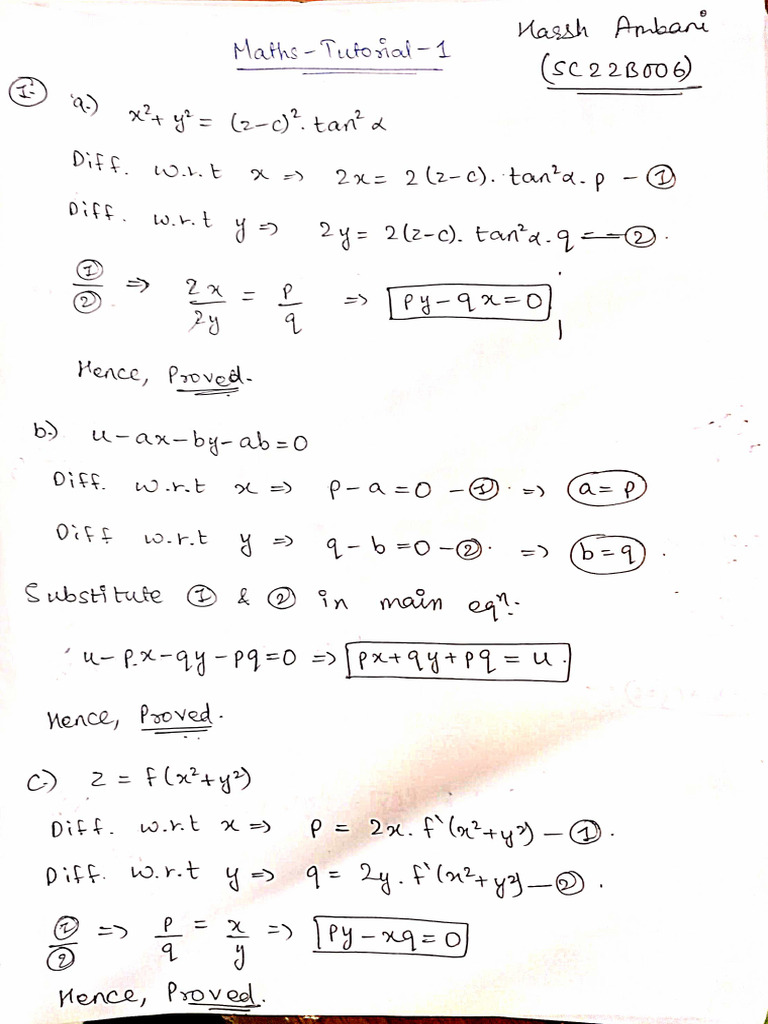 Maths-Tutorial-1
Harsh Ambani
(SC22B006)
1. a.) x² + y² = (z-c)². tan² α
Diff. w.r.t x => 2x = 2(z-c). tan²α. p - ①
Diff. w.r.t y => 2y = 2(z-c). tan²α. q - ②.
①/② => 2x/2y = p/q => py - qx = 0
Hence, Proved.
b.) u-ax-by-ab=0
Diff. w.r.t x => p-a=0 - ①. => a=p
Diff w.r.t y => q-b=0-②. => b=q.
Substitute ① & ② in main eqⁿ:
u-p.x-qy-pq=0 => px+qy+pq = u.
Hence, Proved.
c.) z = f(x²+y²)
Diff. w.r.t x => p = 2x. f`(x²+y²) - ①.
Diff. w.r.t y => q = 2y. f`(x²+y²) - ②.
①/② => p/q = x/y => py-xq=0
Hence, Proved.